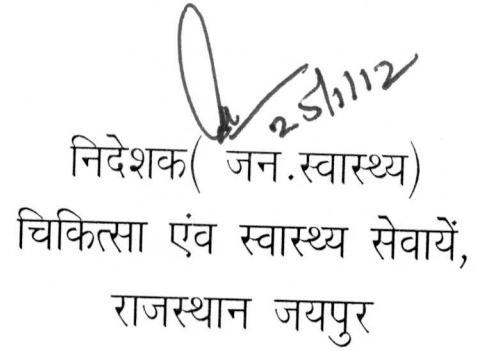 25/1/12
निदेशक( जन.स्वास्थ्य)
चिकित्सा एंव स्वास्थ्य सेवायें,
राजस्थान जयपुर